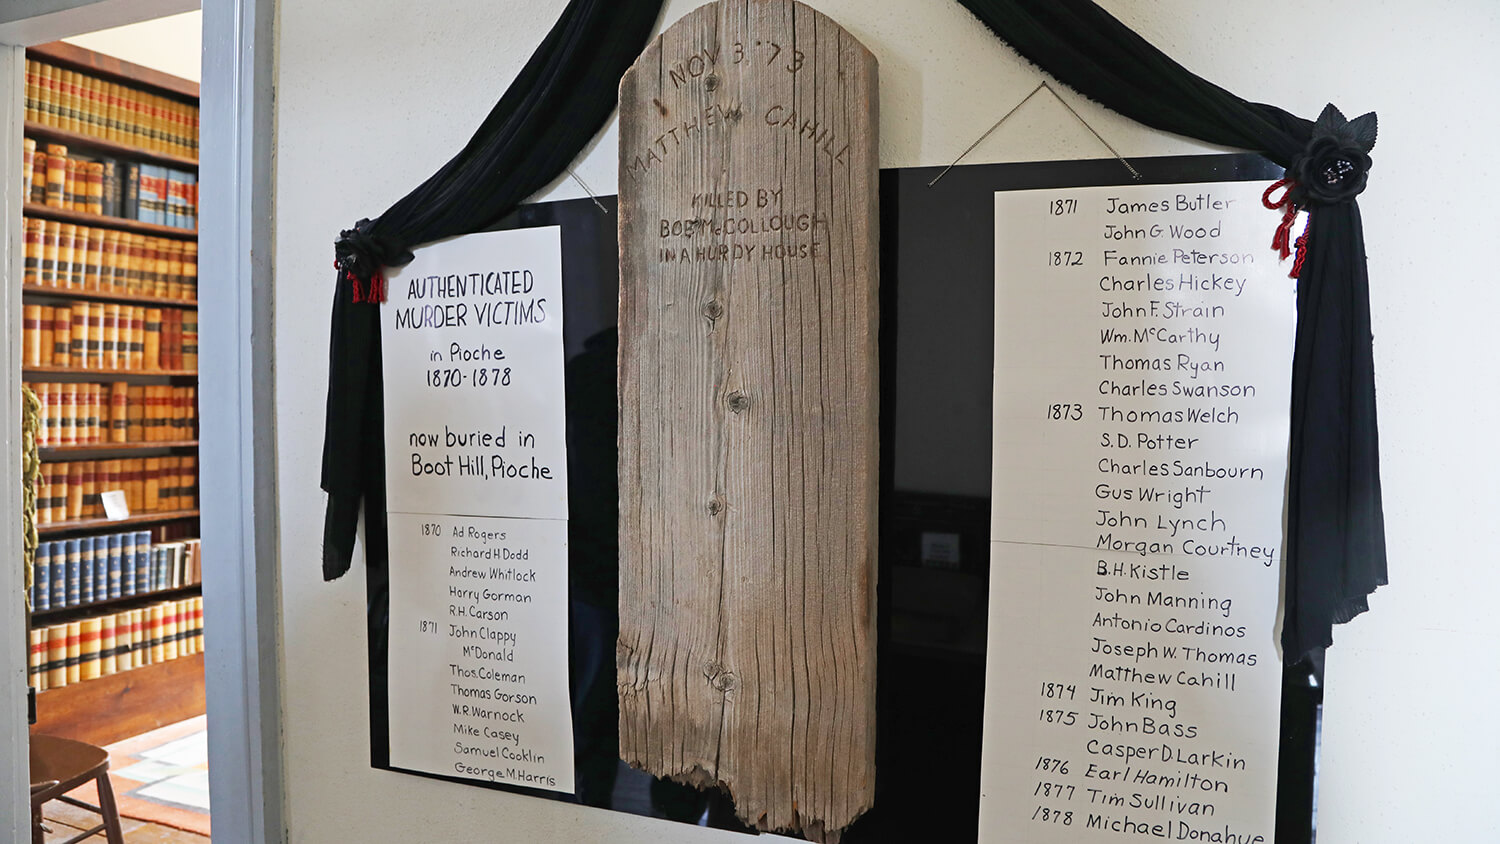 AUTHENTICATED
MURDER VICTIMS
in Pioche
1870-1878
now buried in
Boot Hill, Pioche
1870 Ad Rogers
Richard H. Dodd
Andrew Whitlock
Harry Gorman
R.H. Carson
1871 John Clappy
McDonald
Thos. Coleman
Thomas Gorson
W.R. Warnock
Mike Casey
Samuel Cooklin
George M. Harris
NOV 3 '73
MATTHEW CAHILL
KILLED BY
BOB McCOLLOUGH
IN A HURDY HOUSE
1871 James Butler
John G Wood
1872 Fannie Peterson
Charles Hickey
John F. Strain
Wm. McCarthy
Thomas Ryan
Charles Swanson
1873 Thomas Welch
S.D. Potter
Charles Sanbourn
Gus Wright
John Lynch
Morgan Courtney
B.H. Kistle
John Manning
Antonio Cardinos
Joseph W. Thomas
Matthew Cahill
1874 Jim King
1875 John Bass
Casper D. Larkin
1876 Earl Hamilton
1877 Tim Sullivan
1878 Michael Donahue